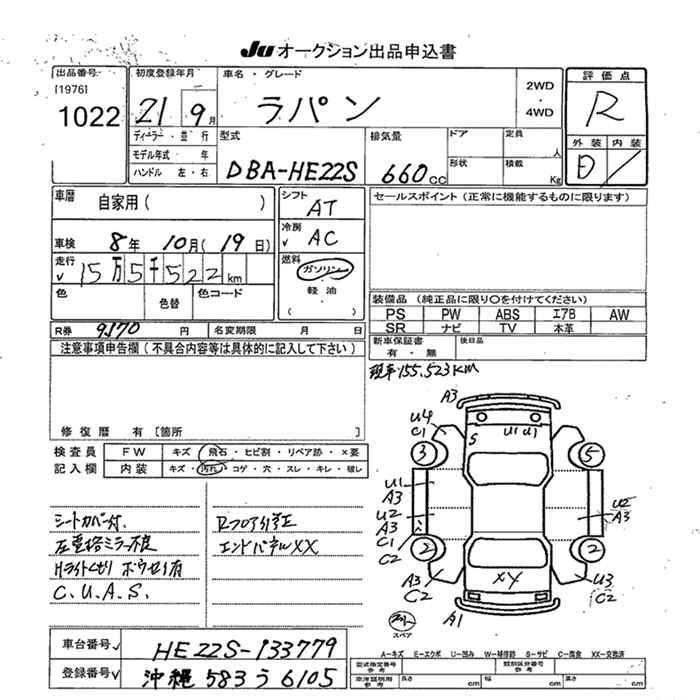 Ju オークション出品申込書
出品番号
[1976]
1022
初度登録年月
21 9月
ディーラー・並 行
モデル年式 年
ハンドル 左・右
車名・グレード
ラパン
2WD
・
4WD
評価点
R
外装 内装
D
型式
DBA-HE22S
排気量
660cc
ドア
定員
人
形状
積載
Kg
車暦
自家用( )
車検 8年 10月(19日)
走行 15万5千522km
色
色替
色コード
R券 9170 円
名変期限 月 日
シフト
AT
冷房
AC
燃料
ガソリン
軽油
( )
セールスポイント (正常に機能するものに限ります)
装備品 (純正品に限り〇を付けてください)
PS PW ABS エアB AW
SR ナビ TV 本革
新車保証書
有・無
後日品
注意事項申告欄(不具合内容等は具体的に記入して下さい)
修復暦 有 [箇所 ]
現車155.523KM
検査員
記入欄
FW キズ 飛石・ヒビ割・リペア跡・×要
内装 キズ・汚れ・コゲ・穴・スレ・キレ・破レ
シートカバー付.
左電格ミラー不良
Hライトくもり ボウセイ有
C.U.A.S.
Rフロア修正
エンドパネルXX
A3
U4
C1
S
U1 U1
3
5
U1
A3
U2
A3
C1
C2
U2
A3
2
2
A3
C2
XX
U3
C2
A1
スペア
車台番号 HE22S-133779
登録番号 沖縄 583 う 6105
A-キズ E-エクボ U-凹み W-補修跡 S-サビ C-腐食 XX-交換済
型式指定番号
参考
類別区分番号
参考
車体証明用
参考
長さ cm 幅 cm 高さ cm